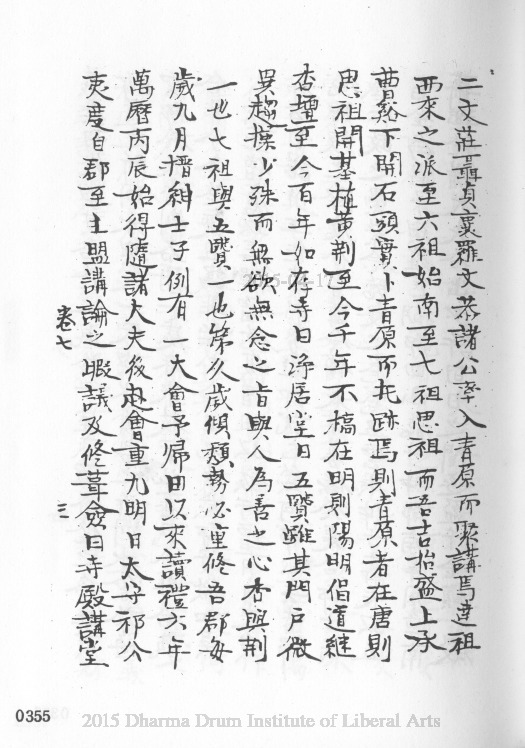 二文莊聶貞襄羅文恭諸公率入青原而聚講焉達祖
西來之派至六祖始南至七祖思祖而吾吉始盛上承
曹谿下開石頭實卜青原而托跡焉則青原者在唐則
思祖開基植黃荊至今千年不槁在明則陽明倡道継
杏壇至今百年如存寺曰淨居堂曰五賢雖其門戶微
異趨操少殊而無欲無念之旨與人為善之心杏與荊
一也七祖與五賢一也第久歲傾頹勢必重修吾郡每
歲九月搢紳士子例有一大會予歸田以來讀禮六年
萬曆丙辰始得隨諸大夫後赴會重九明日太守祁公
夷度自郡至主盟講論之暇議及修葺僉曰寺殿講堂
卷七
三
0355
2015 Dharma Drum Institute of Liberal Arts